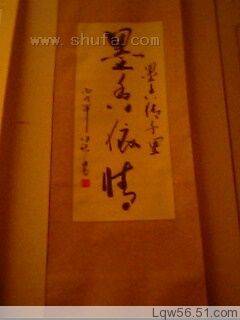 www.shufa.com
墨香情千里
墨香依情
丙戌年
Lqw56.51.com